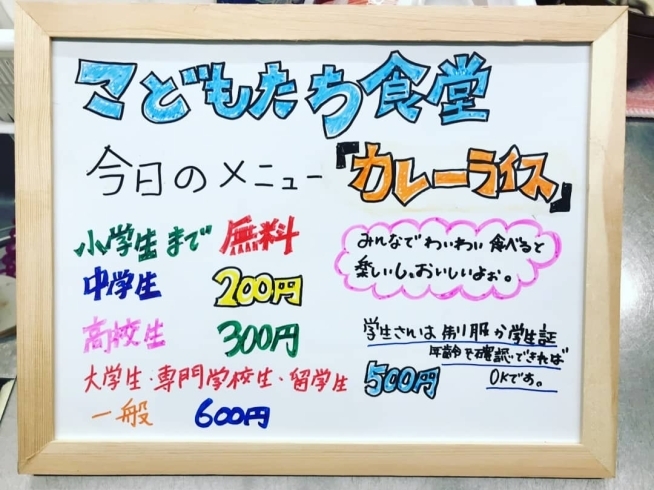 こどもたち食堂
今日のメニュー『カレーライス』
小学生まで 無料
中学生 200円
高校生 300円
大学生・専門学校生・留学生 500円
一般 600円
みんなでわいわい食べると
楽しいし、おいしいよぉ。
学生さんは制服か学生証
年齢を確認できれば
OKです。